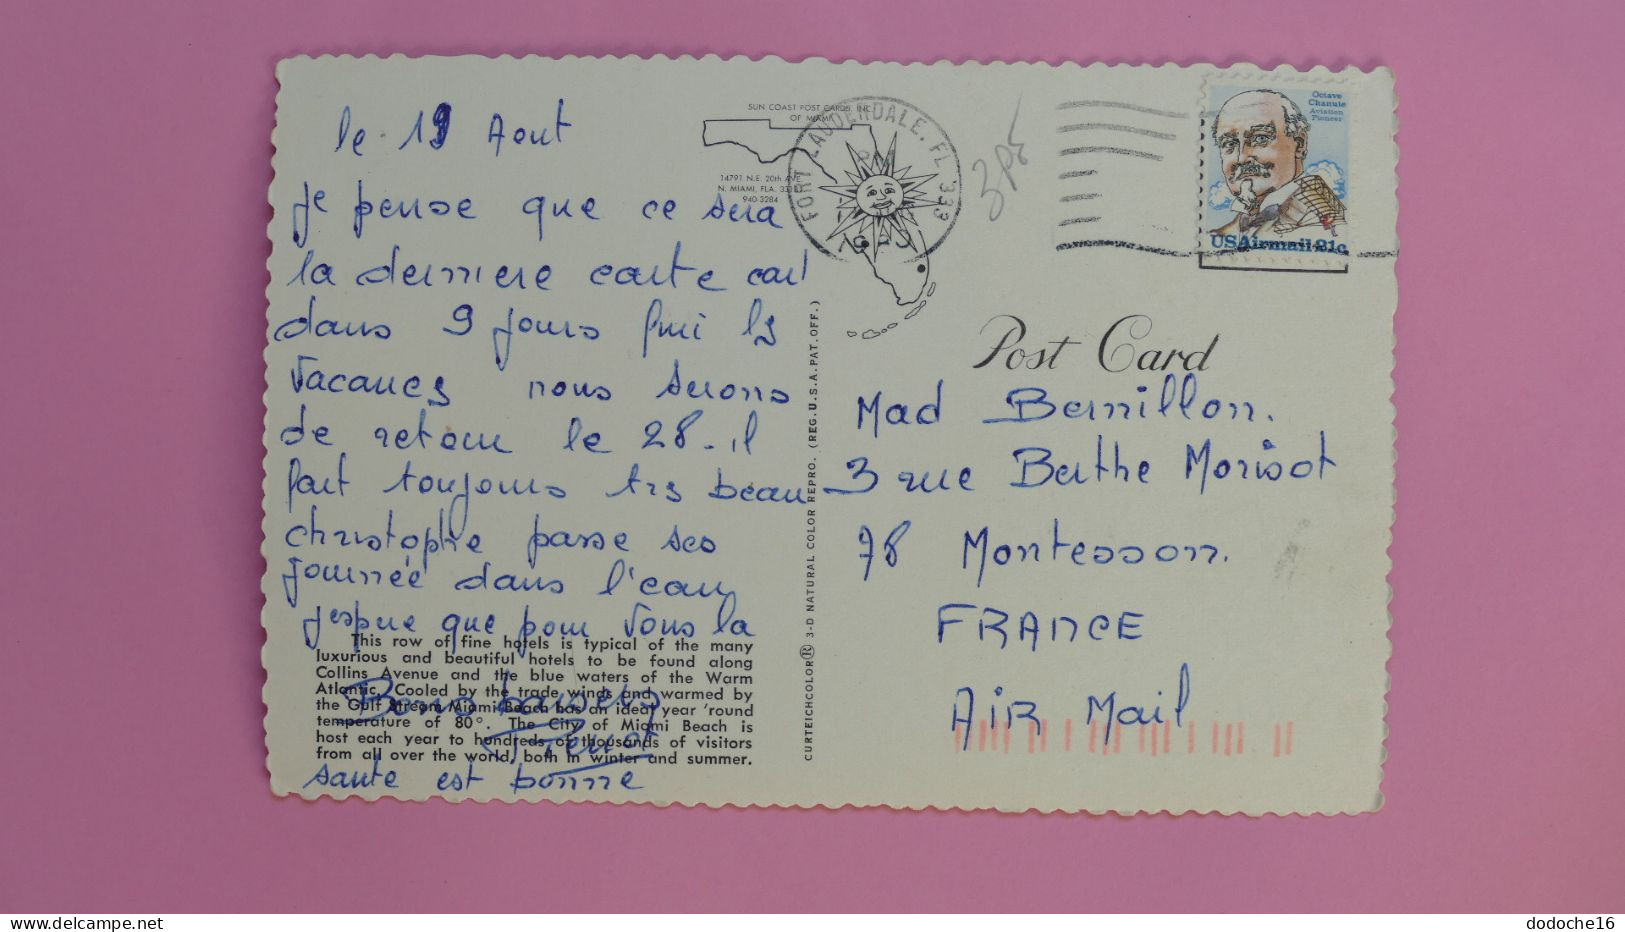 le 19 Aout
je pense que ce sera
la derniere carte car
dans 9 jours fini ls
vacances nous serons
de retour le 28. il
fait toujours trs beau
christophe passe ses
journée dans l'eau
j'espere que pour vous la
santé est bonne
Bons baisers
This row of fine hotels is typical of the many
luxurious and beautiful hotels to be found along
Collins Avenue and the blue waters of the Warm
Atlantic. Cooled by the trade winds and warmed by
the Gulf Stream Miami Beach has an ideal year 'round
temperature of 80°. The City of Miami Beach is
host each year to hundreds of thousands of visitors
from all over the world, both in winter and summer.
SUN COAST POST CARDS, INC.
OF MIAMI
14791 N.E. 20th AVE.
N. MIAMI, FLA.
940-3284
FORT LAUDERDALE, FL 333
PM
CURTEICHCOLOR® 3-D NATURAL COLOR REPRO. (REG. U.S.A. PAT. OFF.)
Octave
Chanute
Aviation
Pioneer
USAirmail 21c
Post Card
Mad Bernillon.
3 rue Berthe Morisot
78 Montesson.
FRANCE
AIR Mail
www.delcampe.net
dodoche16